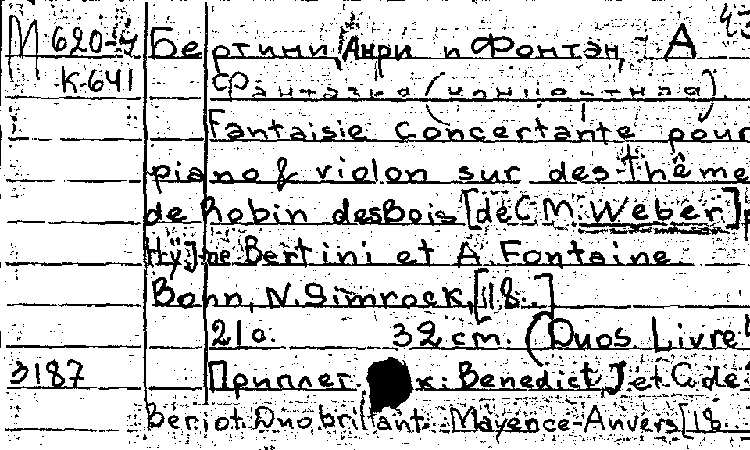 М 620-4 Бертини, Анри и Фонтэн, А
К-641 Фантазия (концертная).
Fantaisie concertante pour
piano & violon sur des thême
de Robin des Bois [de C M. Weber] p
Hÿ me Bertini et A. Fontaine.
Bonn, N. Simrock, [18..]
21 с. 32 cm. (Duos. Livre
3187 Приплет. к: Benedict, J et C. de
Beriot. Duo brillant. Mayence-Anvers [18